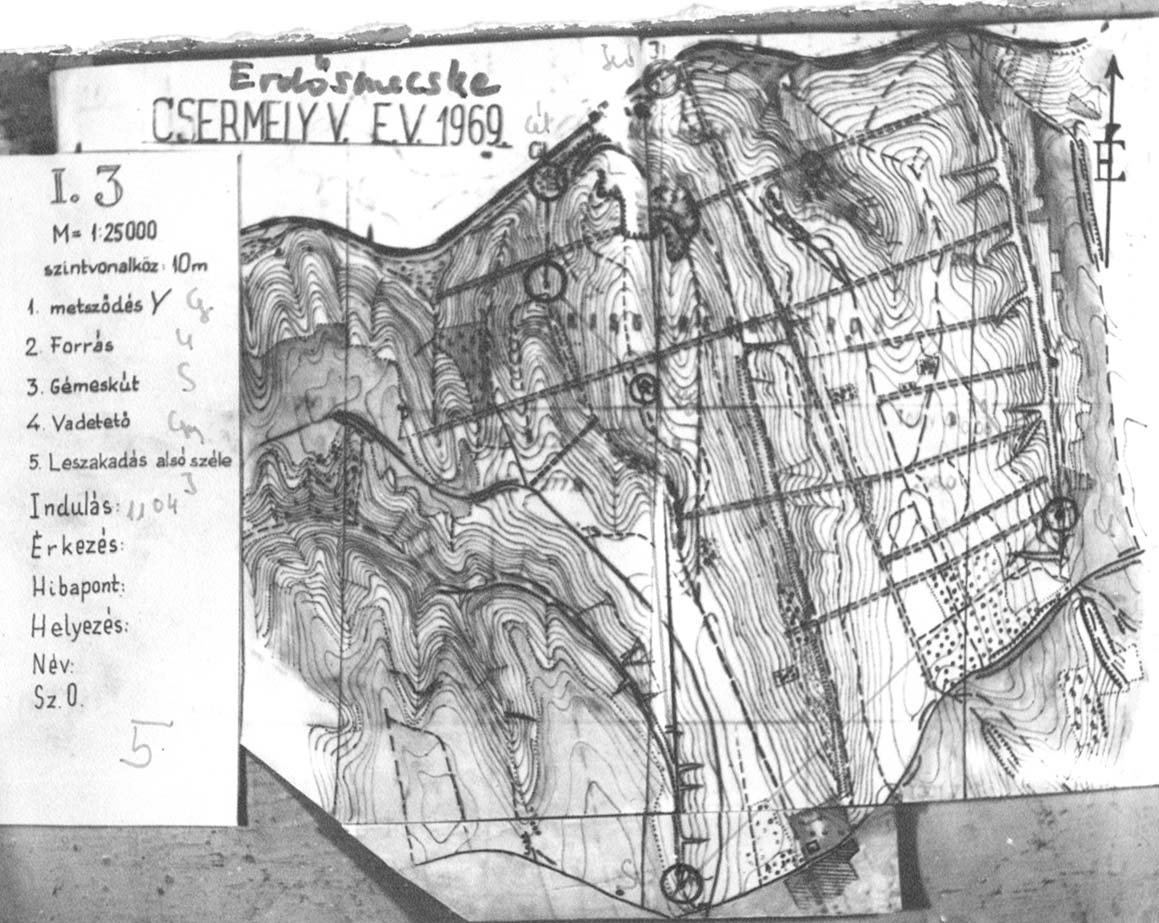 Erdősmecske
CSERMELY V. E.V. 1969.
I. 3
M= 1:25000
szintvonalköz: 10m
1. metsződés Y
2. Forrás
3. Gémeskút
4. Vadetető
5. Leszakadás alsó széle
Indulás: 1104
Érkezés:
Hibapont:
Helyezés:
Név:
Sz. O.
5
É